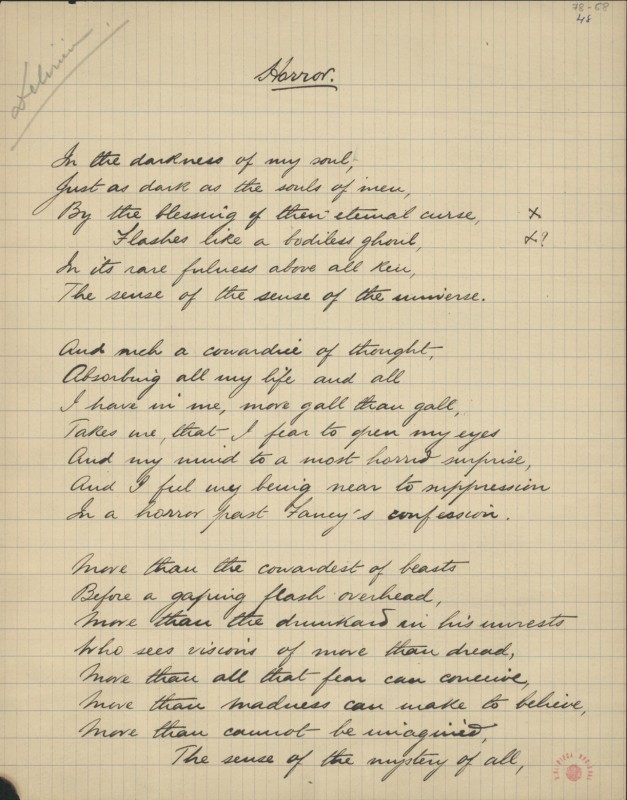 78-68
48
Delirium.
Horror.
In the darkness of my soul,
Just as dark as the souls of men,
By the blessing of their eternal curse, x
Flashes like a bodiless ghoul, x?
In its rare fulness above all ken,
The sense of the sense of the universe.
And such a cowardice of thought,
Absorbing all my life and all
I have in me, more gall than gall,
Takes me, that I fear to open my eyes
And my mind to a most horrid surprise,
And I feel my being near to suppression
In a horror past Fancy's confession.
More than the cowardest of beasts
Before a gaping flash overhead,
More than the drunkard in his unrests
Who sees visions of more than dread,
More than all that fear can conceive,
More than madness can make to believe,
More than cannot be imagined,
The sense of the mystery of all,